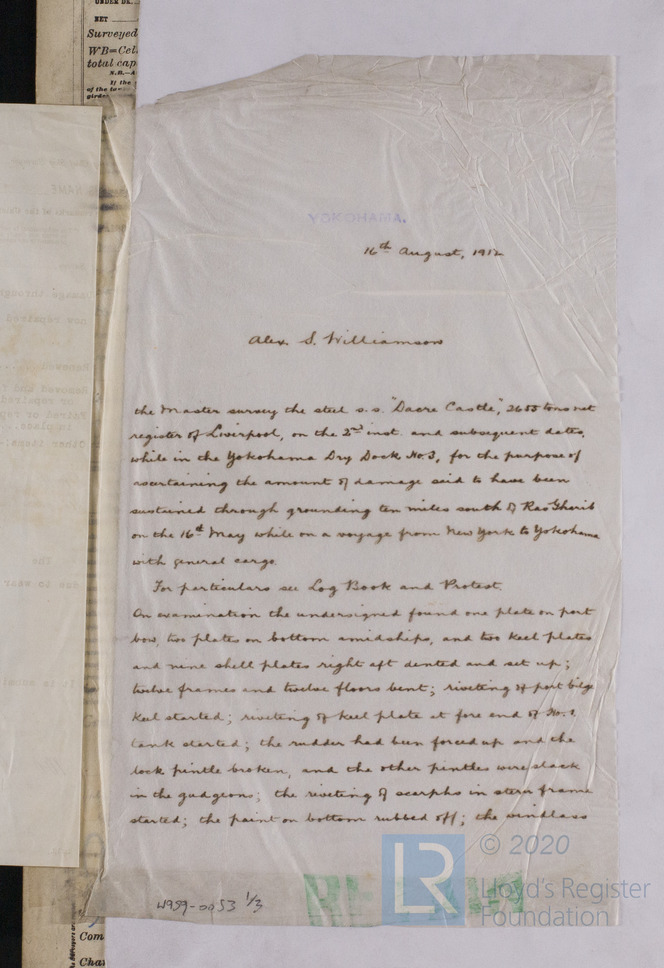 UNDER DK.
NET
Surveyed
WB=Cel
total cap
N.B.—A
If the
of the
YOKOHAMA.
16th August, 1912
Alex. S. Williamson
the Master survey the steel s.s. "Dacre Castle", 2655 tons net
register of Liverpool, on the 2nd inst. and subsequent dates,
while in the Yokohama Dry Dock No. 3, for the purpose of
ascertaining the amount of damage said to have been
sustained through grounding ten miles south of Ras Gharib
on the 16th May while on a voyage from New York to Yokohama
with general cargo.
For particulars see Log Book and Protest.
On examination the undersigned found one plate on port
bow, two plates on bottom amidships, and two keel plates
and nine shell plates right aft dented and set up;
twelve frames and twelve floors bent; riveting of port bilge
keel started; riveting of keel plate at fore end of No. 1
tank started; the rudder had been forced up and the
lock pintle broken, and the other pintles were slack
in the gudgeons; the riveting of scarphs in stern frame
started; the paint on bottom rubbed off; the windlass
W959-0053 1/3
LR
© 2020
Lloyd's Register
Foundation
Com
Char